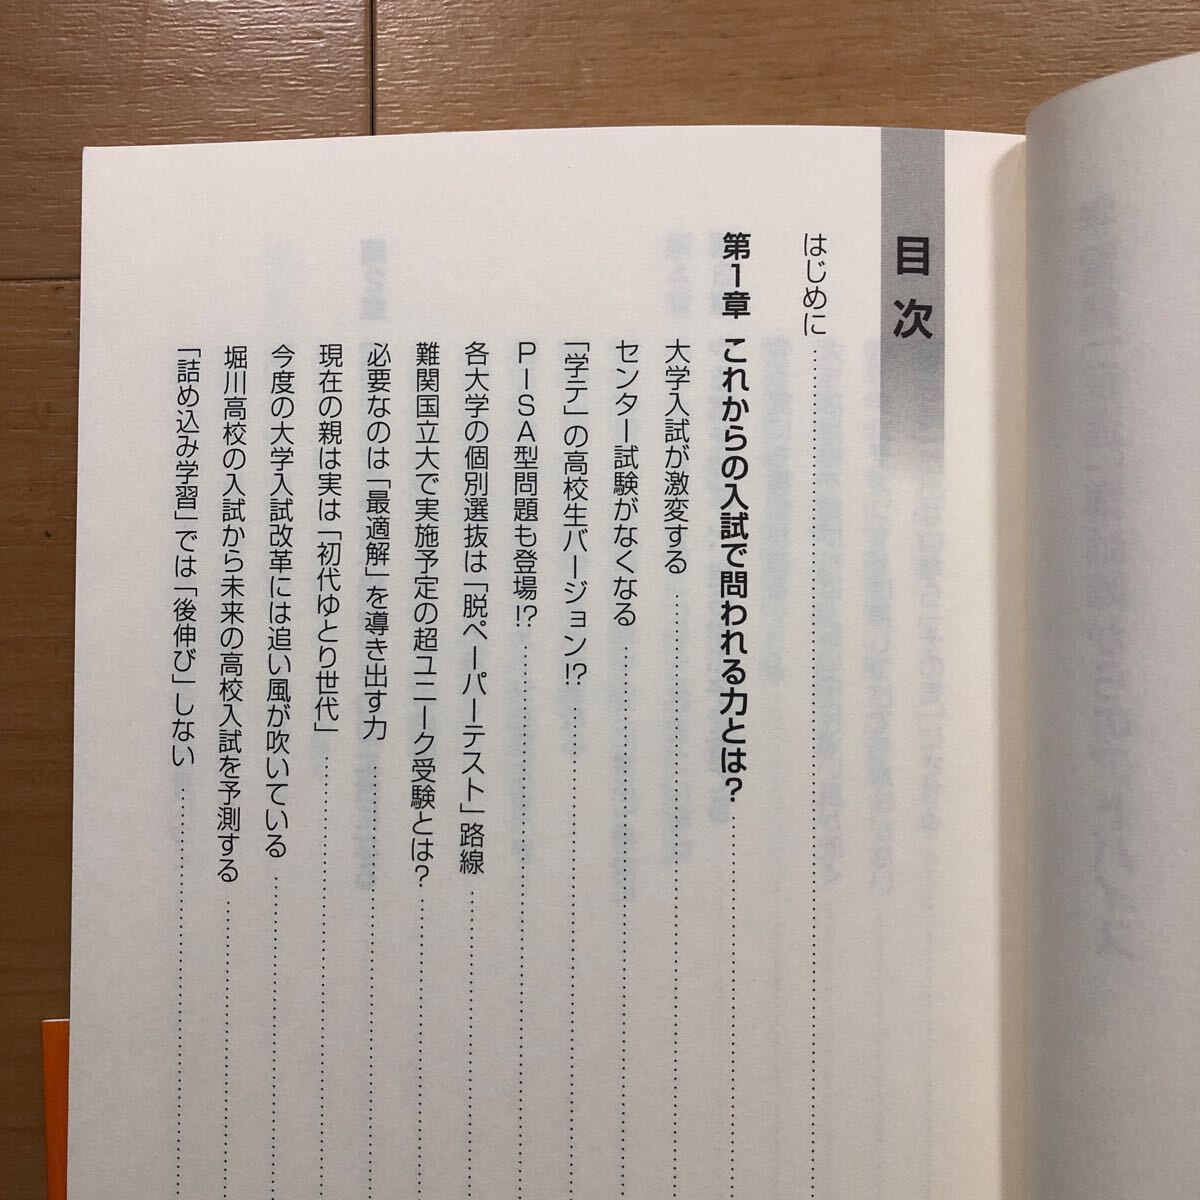 目次
はじめに
第1章 これからの入試で問われる力とは?
大学入試が激変する
センター試験がなくなる
「学テ」の高校生バージョン!?
PISA型問題も登場!?
各大学の個別選抜は「脱ペーパーテスト」路線
難関国立大で実施予定の超ユニーク受験とは?
必要なのは「最適解」を導き出す力
現在の親は実は「初代ゆとり世代」
今度の大学入試改革には追い風が吹いている
堀川高校の入試から未来の高校入試を予測する
「詰め込み学習」では「後伸び」しない